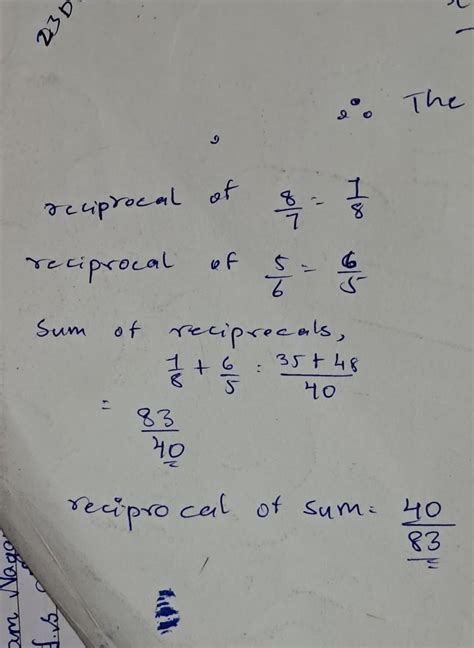 23D
∴ The
,
reciprocal of 8/7 = 7/8
reciprocal of 5/6 = 6/5
Sum of reciprocals,
7/8 + 6/5 = 35+48/40
= 83/40
reciprocal of sum = 40/83
am Nagar